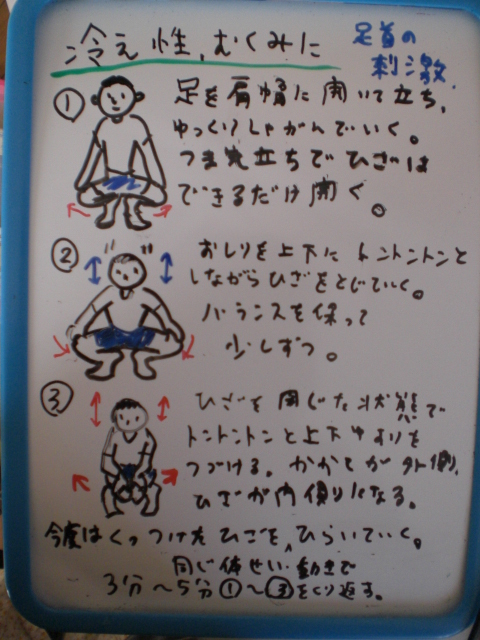 冷え性、むくみに
足首の
刺激
① 足を肩幅に開いて立ち、
ゆっくりしゃがんでいく。
つま先立ちでひざは
できるだけ開く。
② おしりを上下にトントントンと
しながらひざをとじていく。
バランスを保って
少しずつ。
③ ひざを閉じた状態で
トントントンと上下ゆれを
つづける。かかとが外側、
ひざが内側になる。
今度はくっつけたひざを、ひらいていく。
同じ体せい動きで
3分〜5分①〜③をくり返す。